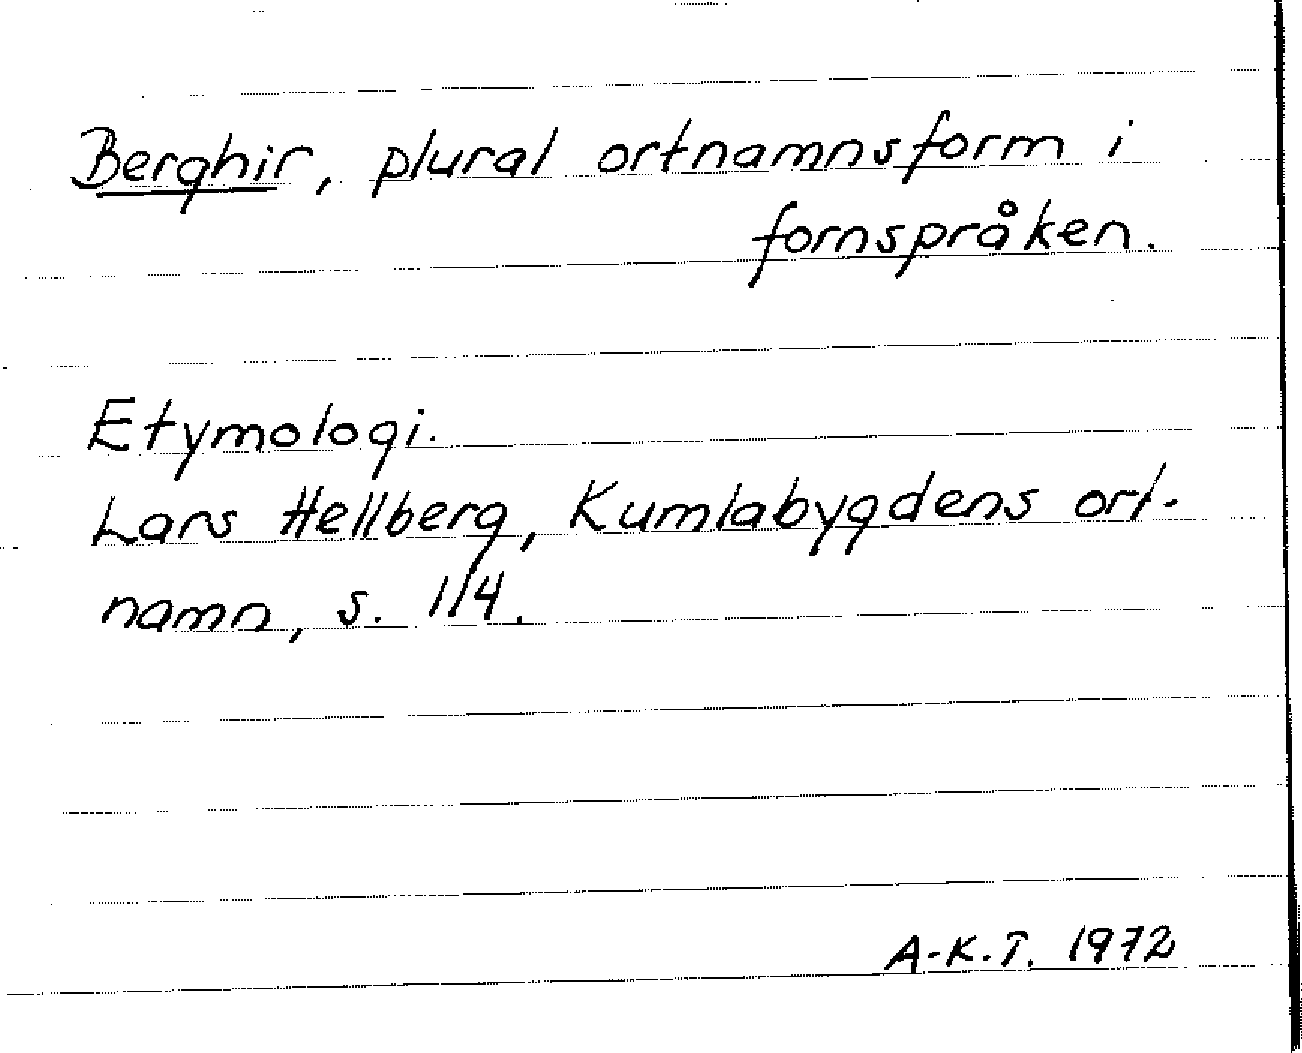 Berghir, plural ortnamnsform i
fornspråken.
Etymologi.
Lars Hellberg, Kumlabygdens ort-
namn, s. 114.
A-K.T. 1972